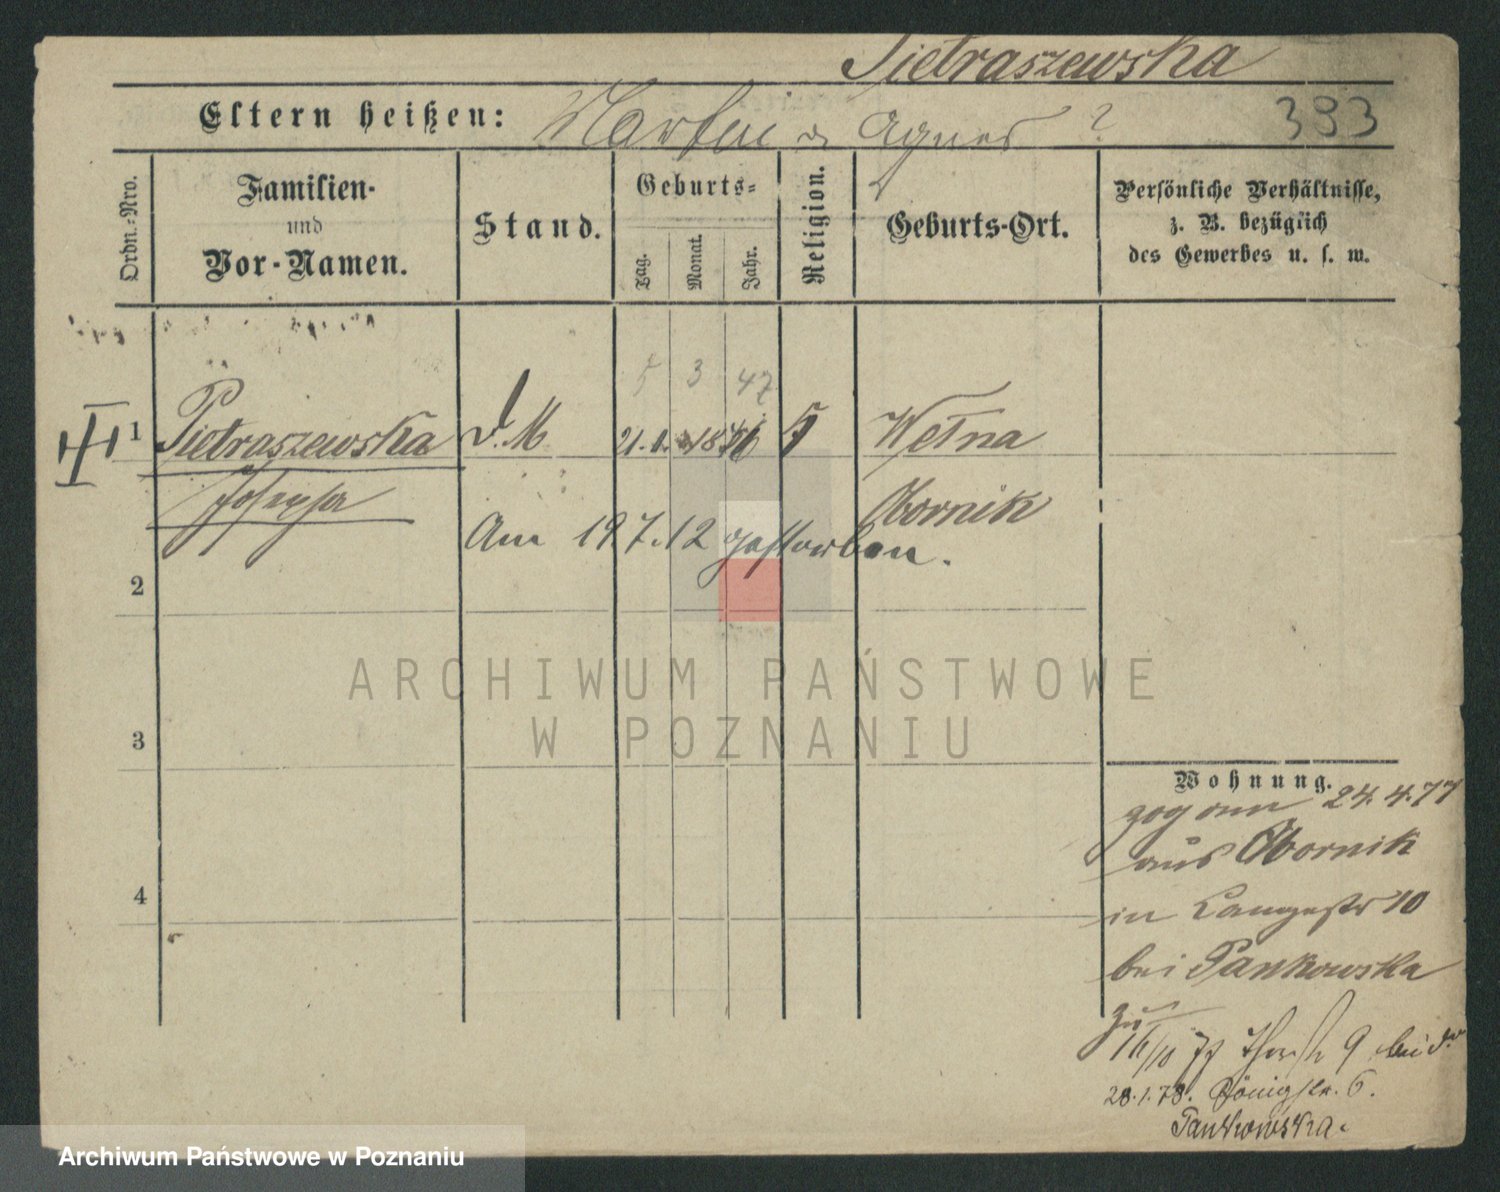 Pietraszewska
Eltern heißen: Martin & Agnes ?
393
Ordn.-Nro.
Familien-
und
Vor-Namen.
Stand.
Geburts-
Tag.
Monat.
Jahr.
Religion.
Geburts-Ort.
Persönliche Verhältnisse,
z. B. bezüglich
des Gewerbes u. s. w.
5 3 47
III
1 Pietraszewska d. M 21. Wełna
Josepha Obornik
Am 19.7.12 gestorben.
2
ARCHIWUM PAŃSTWOWE
W POZNANIU
3
Wohnung.
zog am 24.4.77
aus Obornik
in Langestr 10
bei Pankowska
4
zu
16/10 77 9 bei
28.1.78. Königstr. 6.
Pankowska.
Archiwum Państwowe w Poznaniu